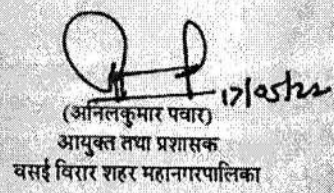 17/05/22
(अनिलकुमार पवार)
आयुक्त तथा प्रशासक
वसई विरार शहर महानगरपालिका